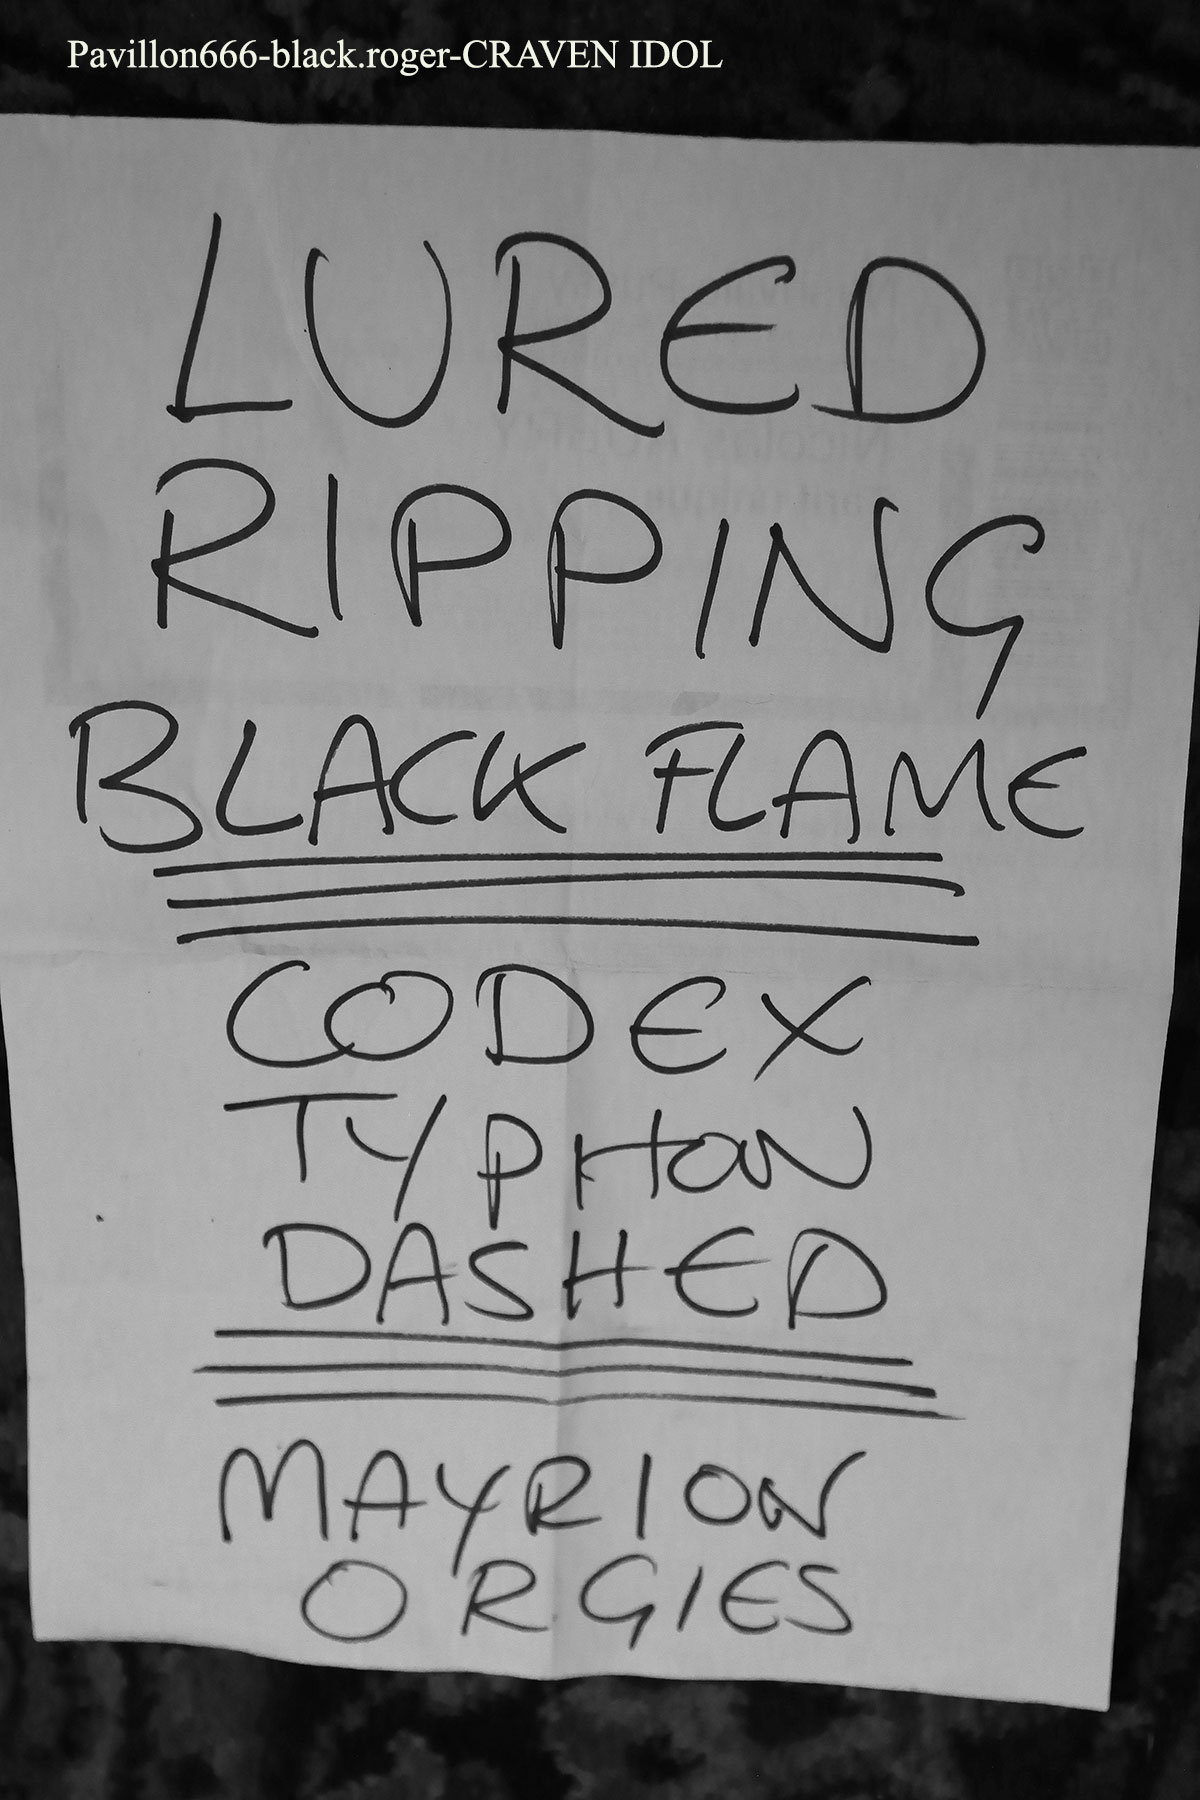 Pavillon666-black.roger-CRAVEN IDOL
LURED
RIPPING
BLACK FLAME
CODEX
TYPHON
DASHED
MAYRION
ORGIES